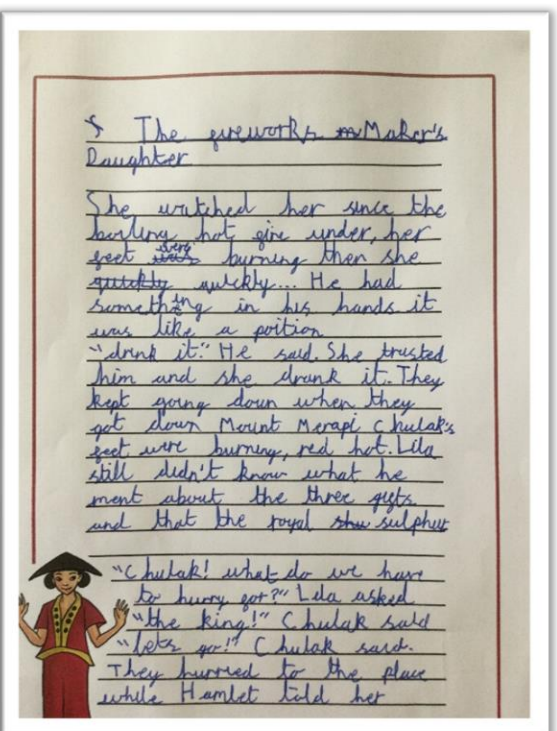 The fireworks Maker's
Daughter
She watched her since the
boiling hot fire under, her
feet were burning then she
quickly quickly... He had
something in his hands it
was like a poition
"drink it." He said. She trusted
him and she drank it. They
kept going down when they
got down Mount Merapi Chulak's
feet were burning, red hot. Lila
still didn't know what he
ment about the three gifts
and that the royal sulphur
"Chulak! what do we have
to hurry for?" Lila asked
"the king!" Chulak said
"lets go!" Chulak said.
They hurried to the place
while Hamlet told her